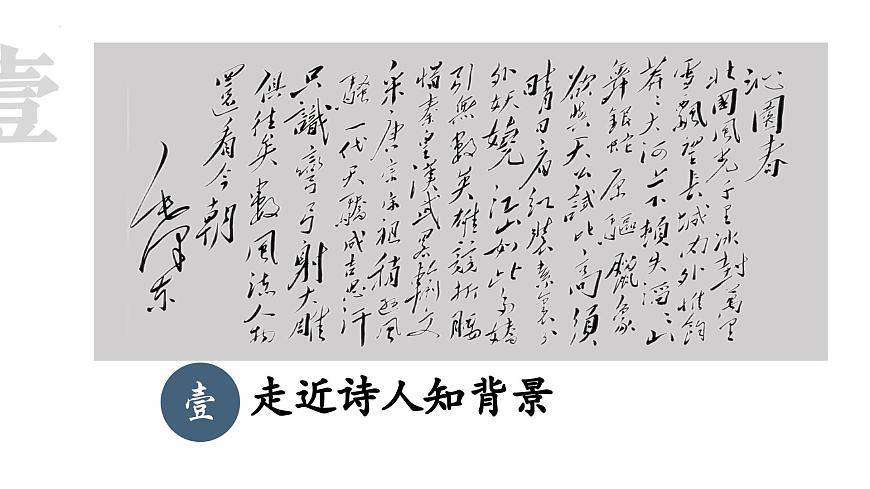 壹
沁園春
北國風光千里冰封萬里
雪飄望長城內外惟餘
莽〻大河上下頓失滔〻山
舞銀蛇原驅臘象
欲與天公試比高須
晴日看紅裝素裹分
外妖嬈江山如此多嬌
引無數英雄競折腰
惜秦皇漢武略輸文
采唐宗宋祖稍遜風
騷一代天驕成吉思汗
只識彎弓射大雕
俱往矣數風流人物
還看今朝
毛澤東
壹 走近诗人知背景